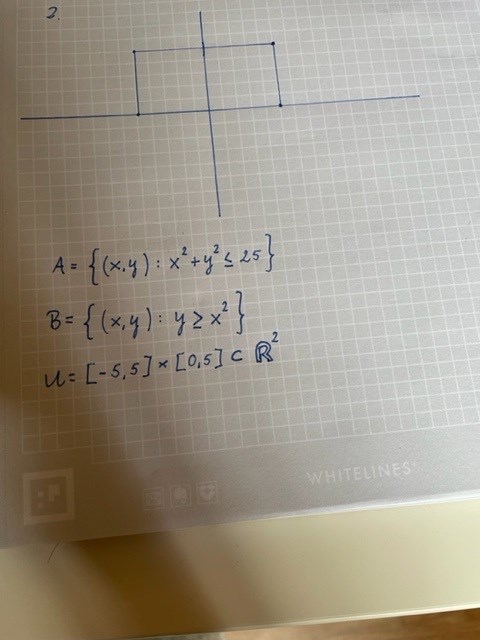 2.
A = {(x,y) : x² + y² ≤ 25}
B = {(x,y) : y ≥ x²}
U = [-5,5] × [0,5] ⊂ ℝ²
WHITELINES®